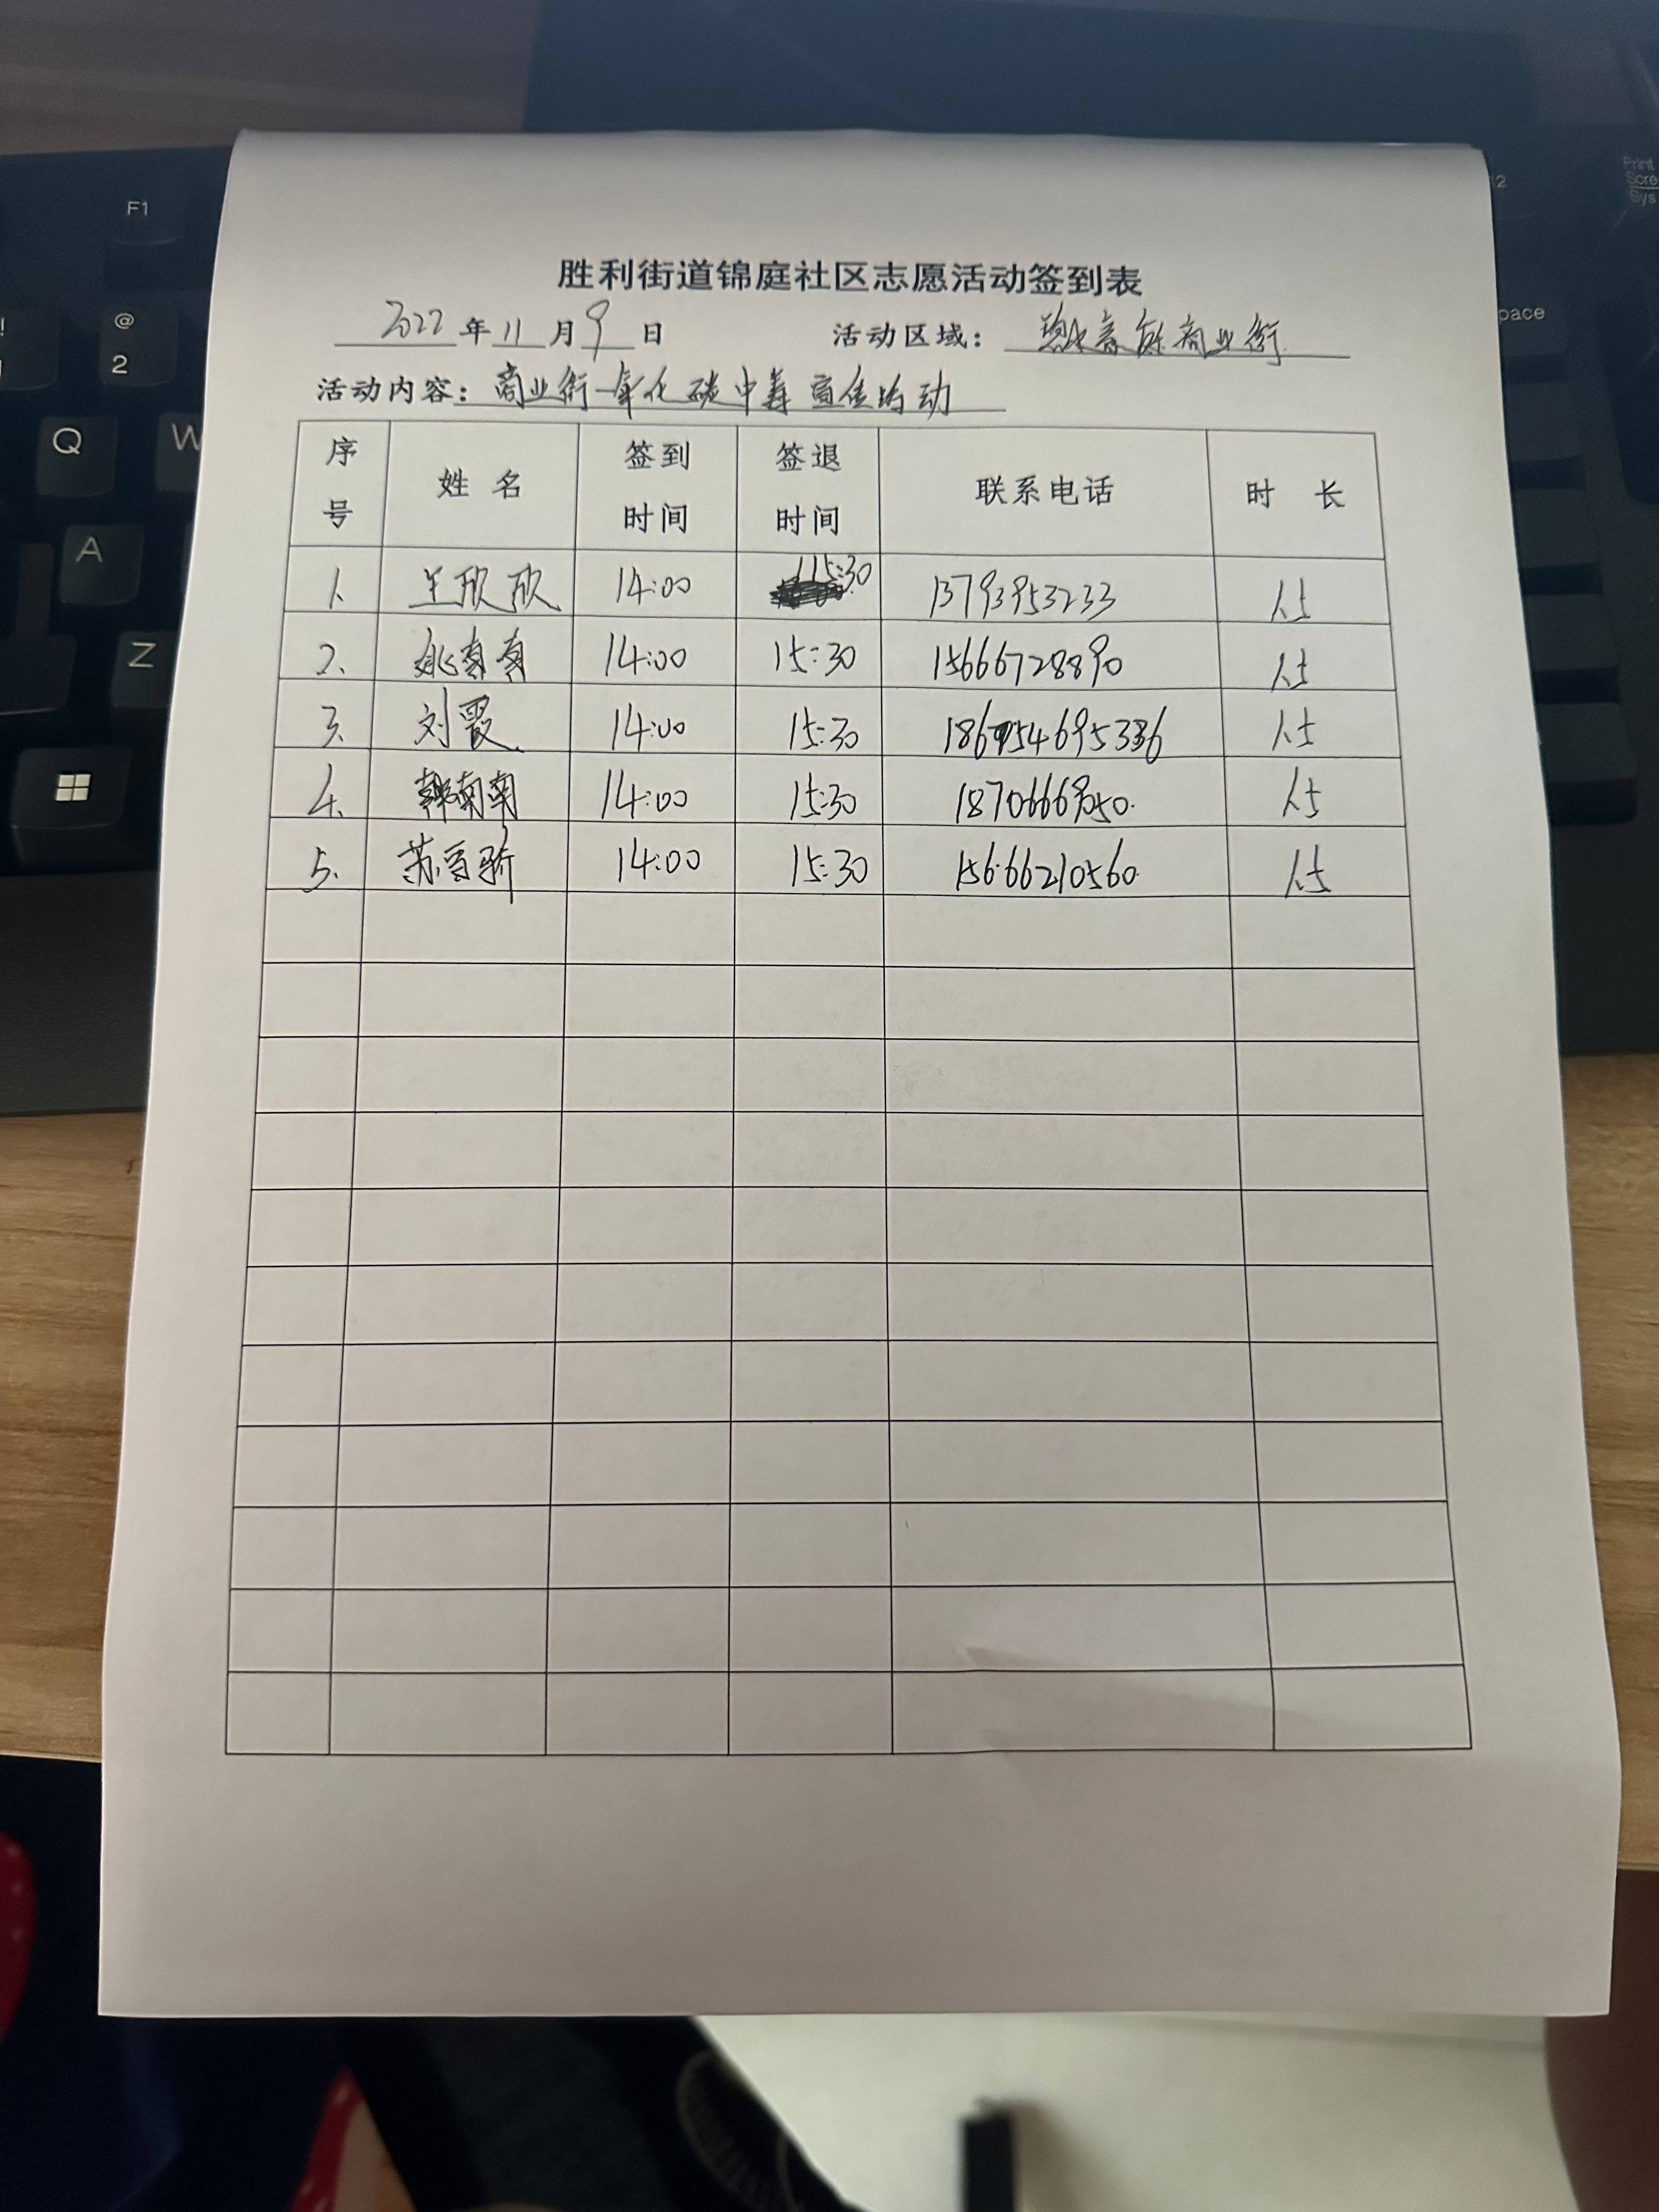 F1
@
2
Q
W
A
Z
Print
Scre
Sys
pace
胜利街道锦庭社区志愿活动签到表
2022年11月9日 活动区域: 商业街
活动内容: 商业街一氧化碳中毒宣传活动
序号 姓名 签到时间 签退时间 联系电话 时长
1. 王欣欣 14:00 15:30 13793953233 1.5
2. 姚 14:00 15:30 15666728890 1.5
3. 刘霞 14:00 15:30 1.5
4. 韩南南 14:00 15:30 18706669050. 1.5
5. 苏 14:00 15:30 15666210560. 1.5